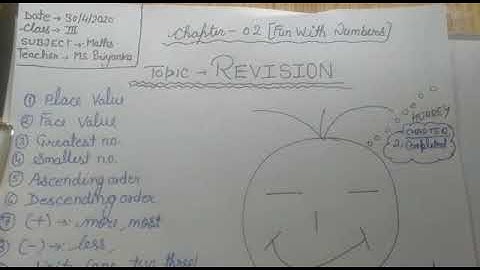 Date → 30/4/2020
Class → III
SUBJECT → Maths
Teacher → MS Briyanka
Chapter - 02 [Fun With Numbers]
Topic → REVISION
① Place Value
② Face Value
③ Greatest no.
④ Smallest no.
⑤ Ascending order
⑥ Descending order
⑦ (+) → more, most
⑧ (-) → less,
HURREY
CHAPTER
2 Completed